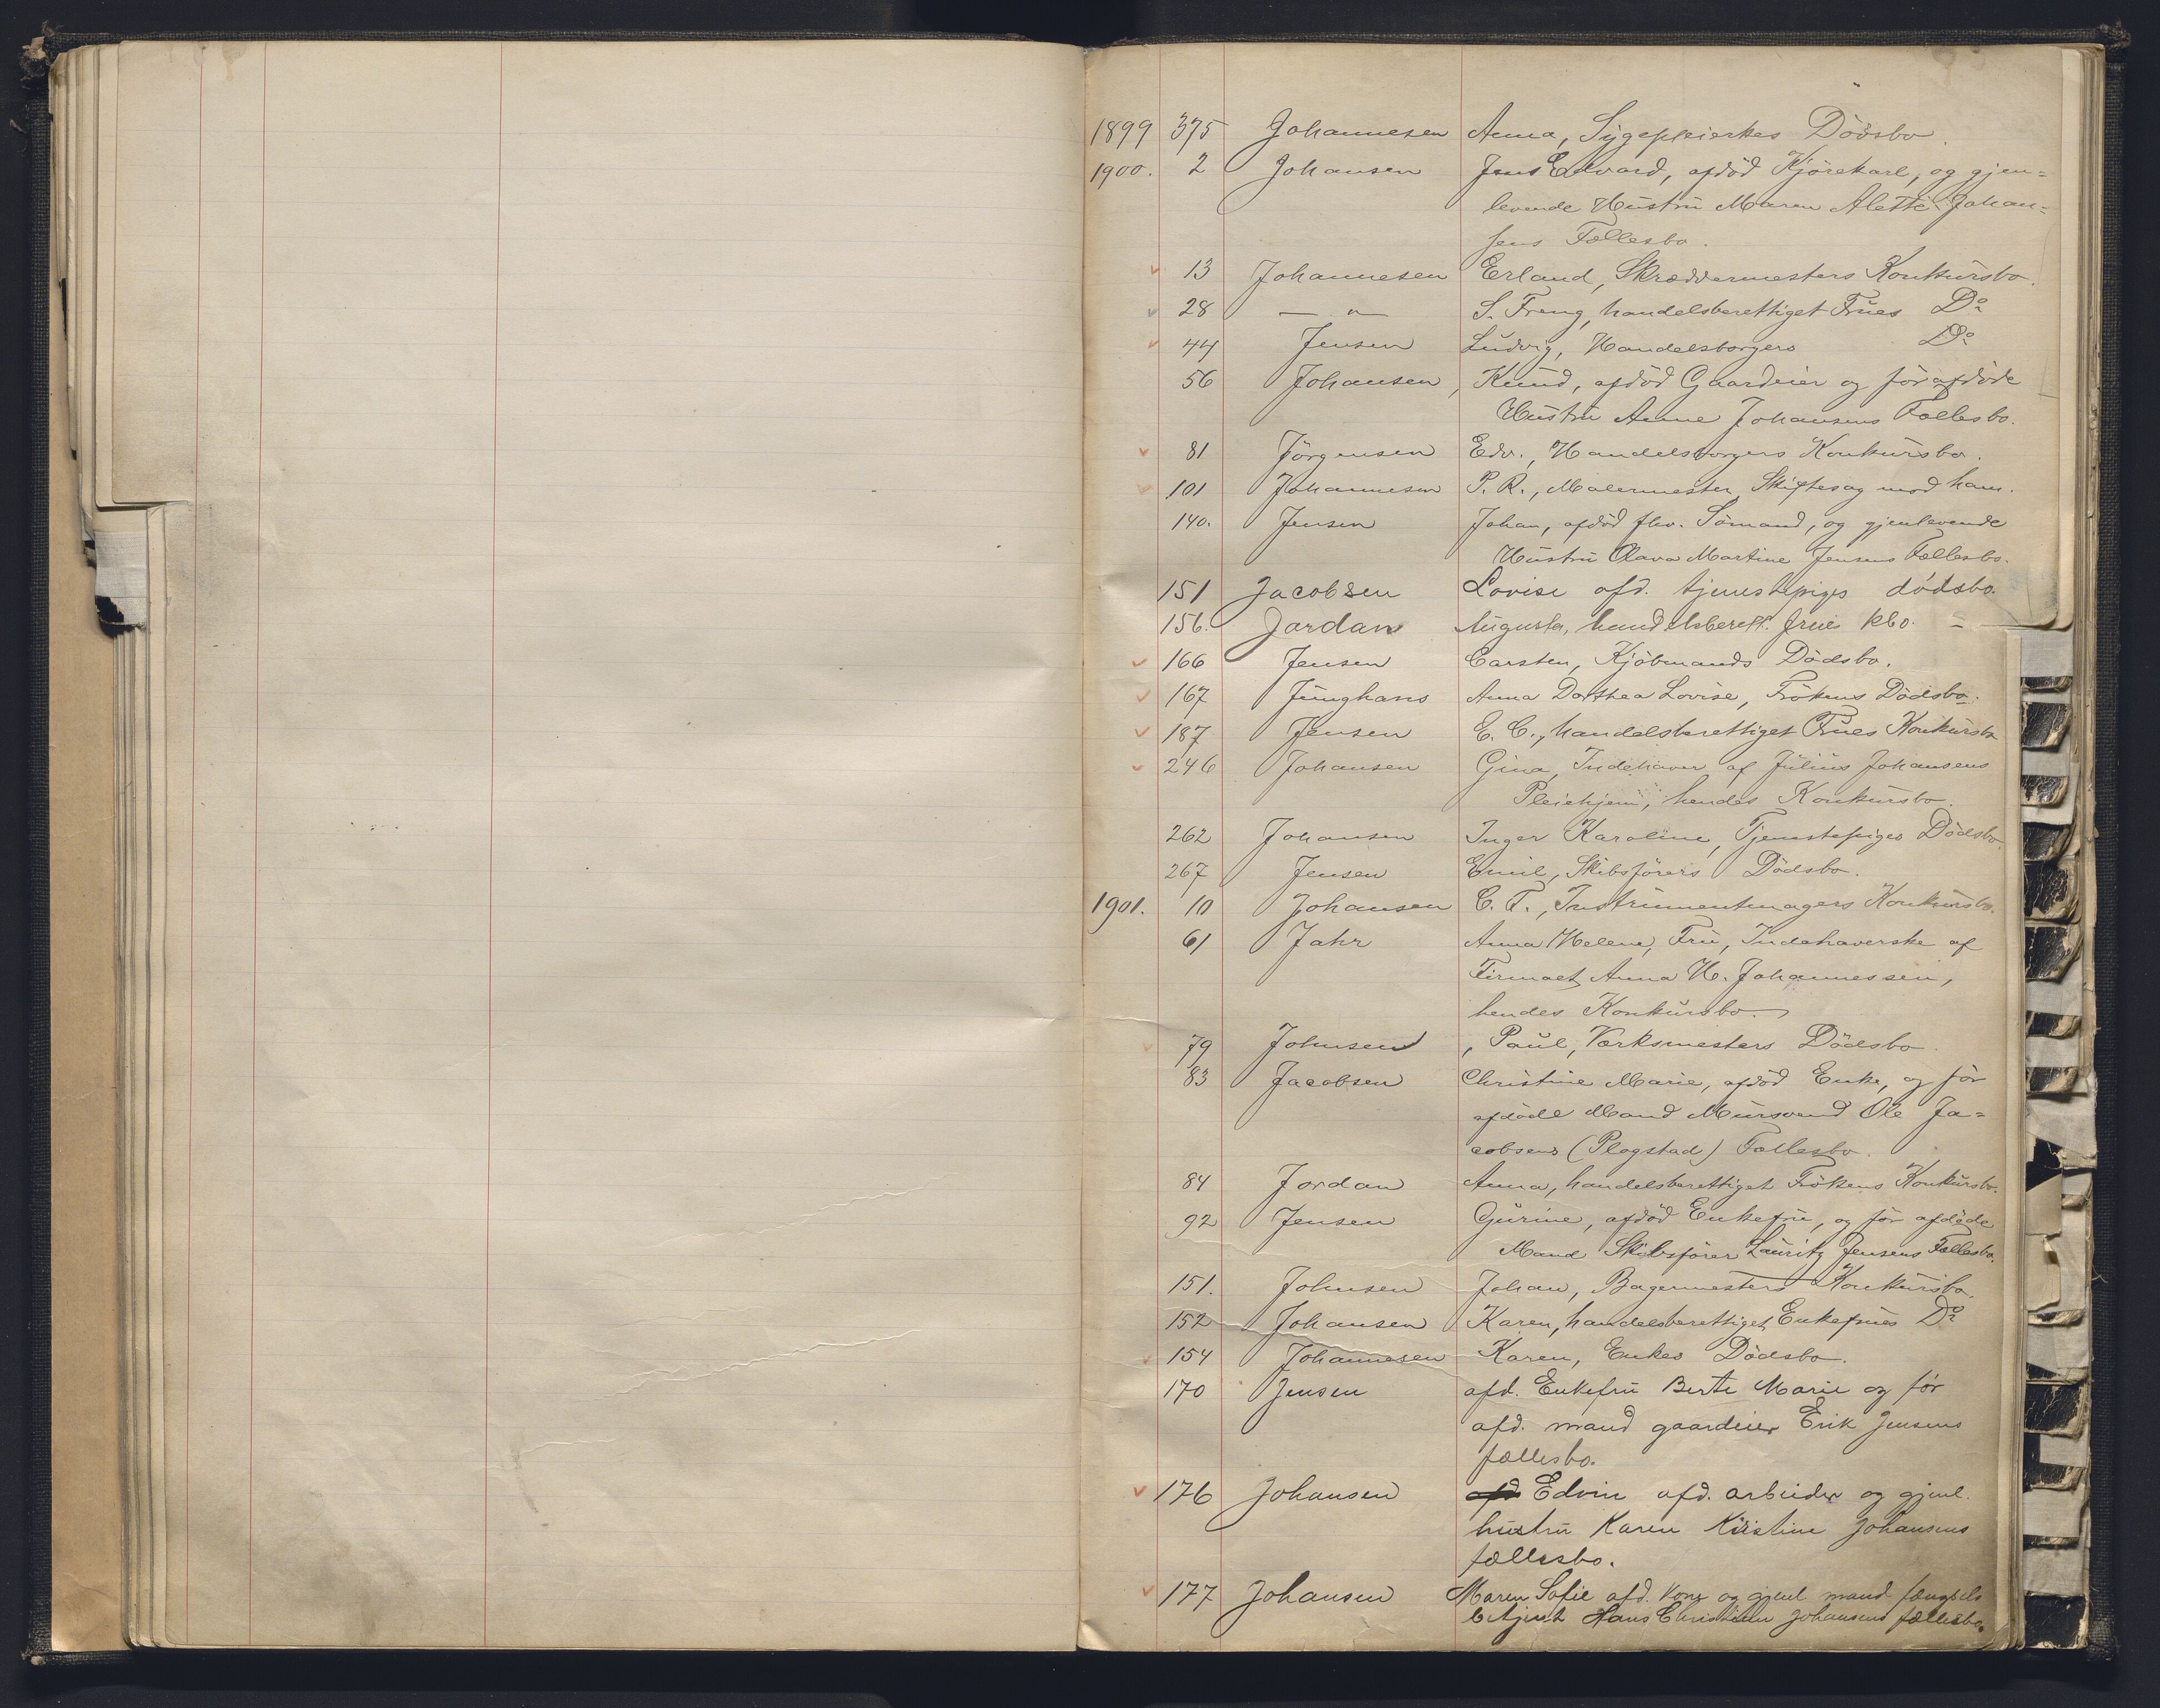 1899 375 Johannesen Anna, Sygepleierkes Dödsbo.
1900. 2 Johansen Jens Edvard, afdöd Kjörekarl, og gjen=
levende Hustru Maren Alette Johan=
sens Fællesbo.
13 Johannesen Erland, Skræddermesters Konkursbo.
28 — " — S. Freng, handelsberettiget Frues Do
44 Jensen Ludvig, Handelsborgers Do
56 Johansen, Knud, afdöd Gaardeier og för afdöde
Hustru Anne Johansens Fællesbo.
81 Jörgensen Edv., Handelsborgers Konkursbo.
101 Johannesen P. R., Malermester, Skiftesag mod ham.
140. Jensen Johan, afdöd fhv. Sömand, og gjenlevende
Hustru Olava Martine Jensens Fællesbo.
151 Jacobsen Lovise afd. tjenestepiges dödsbo.
156. Jordan Augusta, handelsberett. frues kbo. –
166 Jensen Carsten, Kjöbmands Dödsbo.
167 Junghans Anna Dorthea Lovise, Frökens Dödsbo.
187 Jensen E. C., handelsberettiget Frues Konkursbo
246 Johansen Gina, Indehaver af Julius Johansens
Pleiehjem, hendes Konkursbo.
262 Johansen Inger Karoline, Tjenestepiges Dödsbo.
267 Jensen Emil, Skibsförers Dödsbo.
1901. 10 Johansen C. F., Instrumentmagers Konkursbo.
61 Jahr Anna Helene, Fru, Indehaverske af
Firmaet Anna H. Johannessen,
hendes Konkursbo.
79 Johnsen , Paul, Værksmesters Dödsbo.
83 Jacobsen Christine Marie, afdöd Enke, og för
afdöde Mand Mursvend Ole Ja=
cobsens (Plogstad) Fællesbo.
84 Jordan Anna, handelsberettiget Frökens Konkursbo.
92 Jensen Gurine, afdöd Enkefru, og för afdöde
Mand Skibsförer Lauritz Jensens Fællesbo.
151. Johnsen Johan, Bagermesters Konkursbo.
152 Johansen Karen, handelsberettiget Enkefrues Do
154 Johannesen Karen, Enkes Dödsbo.
170 Jensen afd. Enkefru Berte Marie og för
afd. mand gaardeier Erik Jensens
fællesbo.
176 Johansen afd Edvin afd. arbeider og gjenl.
hustru Karen Kristine Johansens
fællesbo.
177 Johansen Maren Sofie afd. kone og gjenl mand fængsels
betjent Hans Christian Johansens fællesbo.